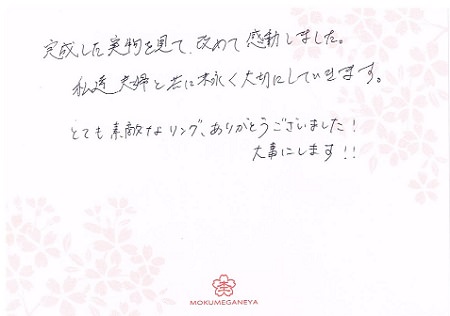 完成した実物を見て、改めて感動しました。
私達夫婦と共に末永く大切にしていきます。
とても素敵なリング、ありがとうございました!
大事にします!!
MOKUMEGANEYA